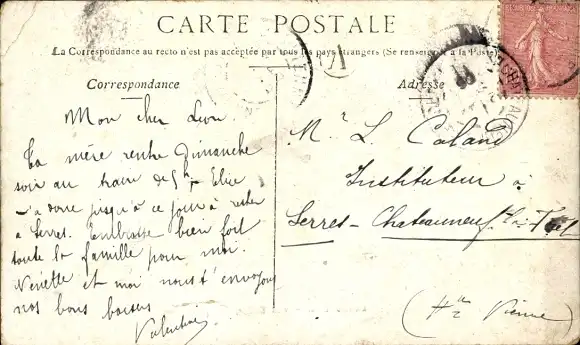 CARTE POSTALE
La Correspondance au recto n'est pas acceptée par tous les pays étrangers (Se renseigner à la Poste)
Correspondance
Adresse
Mon cher Leon
Ta mère rentre Dimanche
soir au train de 5h Elie
a donc jusqu'à ce jour à rester
a Serres. Embrasse bien fort
toute la famille pour moi.
Ninette et moi nous t'envoyons
nos bons baisers
Valentine
Mr L. Caland
Instituteur à
Serres-Chateauneuf-la-
(Hte Vienne)